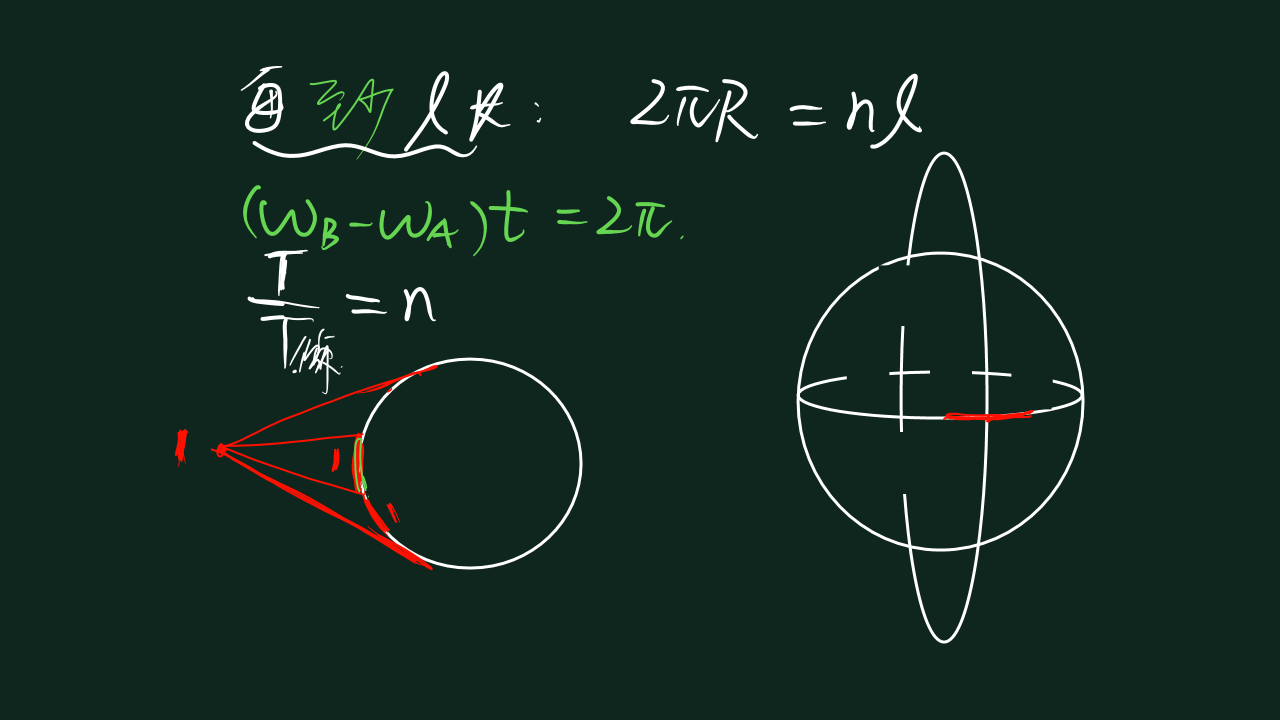 至少 l 长: 2πR = nl
(ω_B - ω_A)t = 2π.
T
T = n